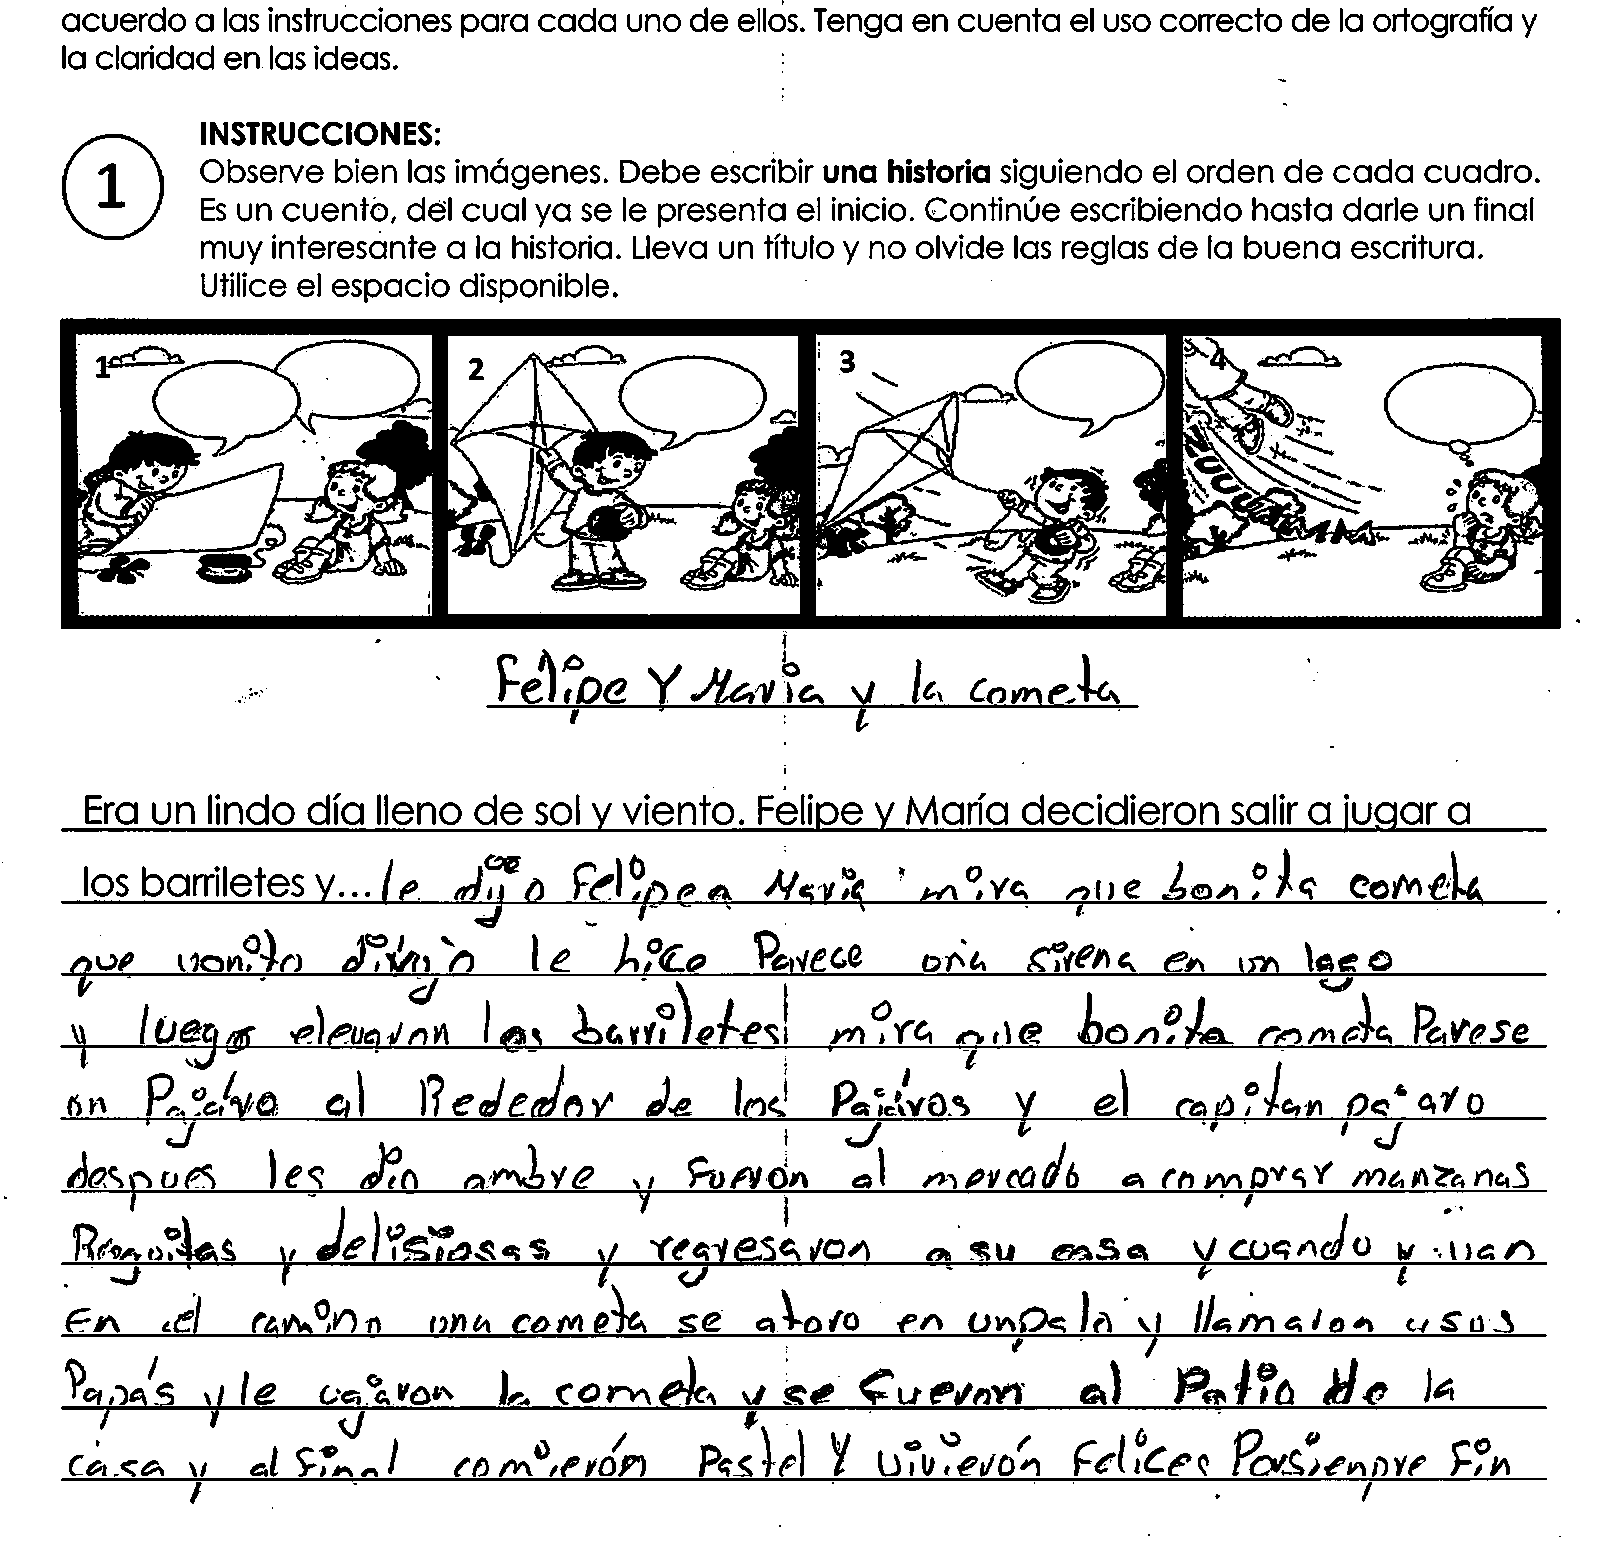 acuerdo a las instrucciones para cada uno de ellos. Tenga en cuenta el uso correcto de la ortografía y
la claridad en las ideas.
1
INSTRUCCIONES:
Observe bien las imágenes. Debe escribir una historia siguiendo el orden de cada cuadro.
Es un cuento, del cual ya se le presenta el inicio. Continúe escribiendo hasta darle un final
muy interesante a la historia. Lleva un título y no olvide las reglas de la buena escritura.
Utilice el espacio disponible.
1 2 3 4
Felipe Y Maria y la cometa
Era un lindo día lleno de sol y viento. Felipe y María decidieron salir a jugar a
los barriletes y... le dijo Felipe a Maria mira que bonita cometa
que vonito divujo le hice Parece una sirena en un lago
y luego elevaron los barriletes mira que bonita cometa Parese
un Pajáro al Rededor de los Pajáros y el capitan pajaro
despues les dio ambre y fueron al mercado a comprar manzanas
Roguitas y delisiosas y regresaron a su casa y cuando
En el camino una cometa se atoro en un palo y llamaron a sus
Papás y le vajaron la cometa y se fueron al Patio de la
casa y al final comierón Pastel Y vivierón Felices Porsienpre Fin